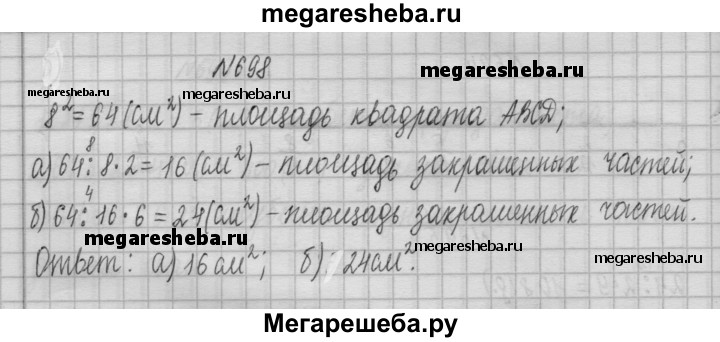 megaresheba.ru
№698
megaresheba.ru
megaresheba.ru
megaresheba.ru
8² = 64 (см²) - площадь квадрата ABCD;
8
а) 64 : 8 · 2 = 16 (см²) - площадь закрашенных частей;
4
б) 64 : 16 · 6 = 24 (см²) - площадь закрашенных частей.
megaresheba.ru
megaresheba.ru
megaresheba.ru
Ответ: а) 16 см²; б) 24 см².
Мегарешеба.ру